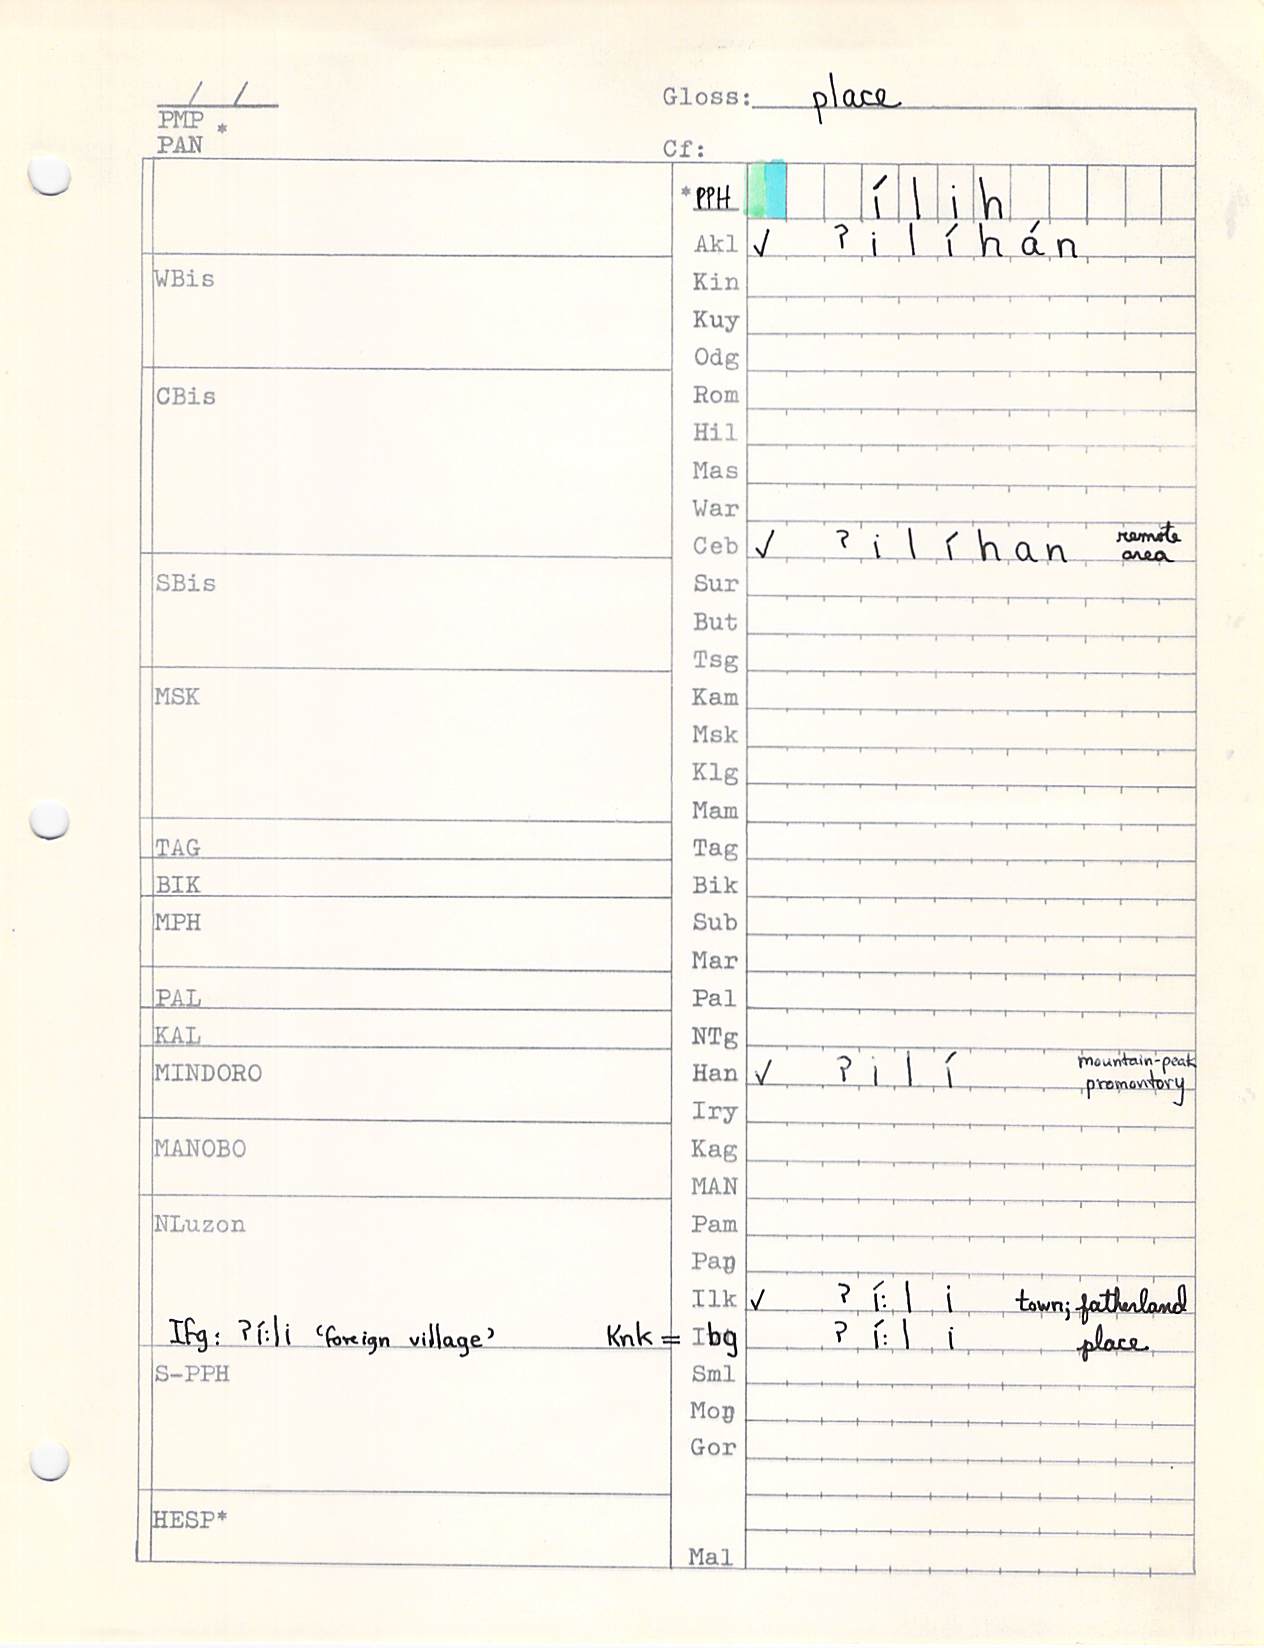 / /
Gloss: place
PMP *
PAN
Cf:
*PPH ílih
Akl ✓ ʔilíhán
WBis
Kin
Kuy
Odg
CBis
Rom
Hil
Mas
War
Ceb ✓ ʔilíhan remote area
SBis
Sur
But
Tsg
MSK
Kam
Msk
Klg
Mam
TAG
Tag
BIK
Bik
MPH
Sub
Mar
PAL
Pal
KAL
NTg
MINDORO
Han ✓ ʔilí mountain-peak promontory
Iry
MANOBO
Kag
MAN
NLuzon
Pam
Paŋ
Ilk ✓ ʔí:li town; fatherland
Ifg: ʔí:li ‘foreign village’ Knk = Ibg ʔí:li place
S-PPH
Sml
Moŋ
Gor
HESP*
Mal